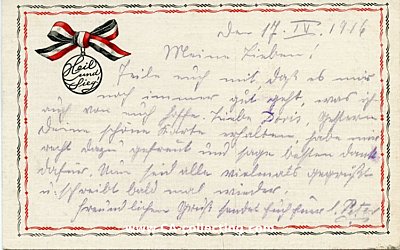 Heil
und
Sieg
den 17. IV. 1916
Meine Lieben!
Teile euch mit, daß es mir
noch immer gut geht, was ich
auch von euch hoffe. Liebe Doris, gestern
deine schöne Karte erhalten, habe mich
recht dazu gefreut und sage besten Dank
dafür. Nun seid alle vielmals gegrüßt
u. schreibt bald mal wieder.
Freundlichen Gruß sendet Euch Euer l. Peter